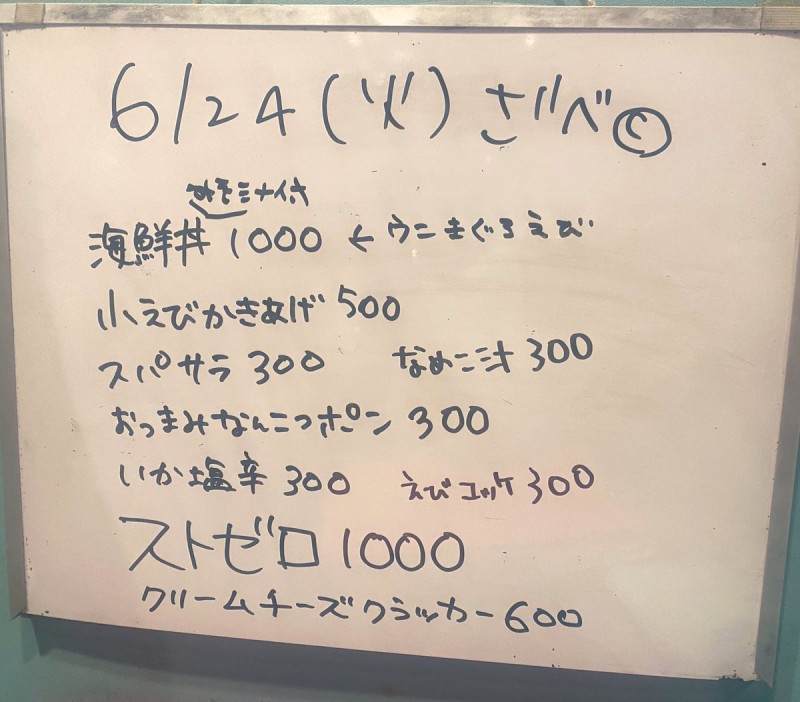 6/24(火) さりべ©
海鮮丼 1000 ← ウニまぐろえび
小えびかきあげ 500
スパサラ 300 なめこ汁 300
おつまみなんこつポン 300
いか塩辛 300 えびユッケ 300
ストゼロ 1000
クリームチーズクラッカー 600